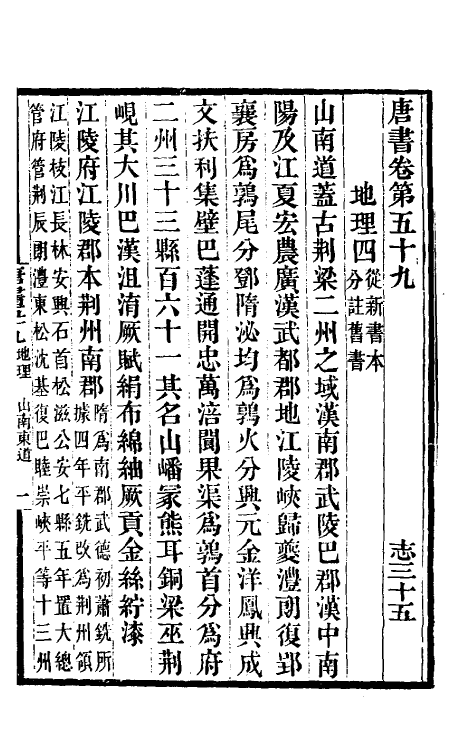 唐書卷第五十九　志三十五
地理四從新書本
分註舊書
山南道蓋古荆梁二州之域漢南郡武陵巴郡漢中南
陽及江夏宏農廣漢武都郡地江陵峽歸夔澧朗復郢
襄房爲鶉尾分鄧隋泌均爲鶉火分興元金洋鳳興成
文扶利集壁巴蓬通開忠萬涪閬果渠爲鶉首分爲府
二州三十三縣百六十一其名山嶓冢熊耳銅梁巫荆
峴其大川巴漢沮淯厥賦絹布綿紬厥貢金絲紵漆
江陵府江陵郡本荆州南郡隋爲南郡武德初蕭銑所
據四年平銑改爲荆州領
江陵枝江長林安興石首松滋公安七縣五年置大總
管府管荆辰朗澧東松沈基復巴睦崇峽平等十三州
唐書五十九地理　山南東道　一